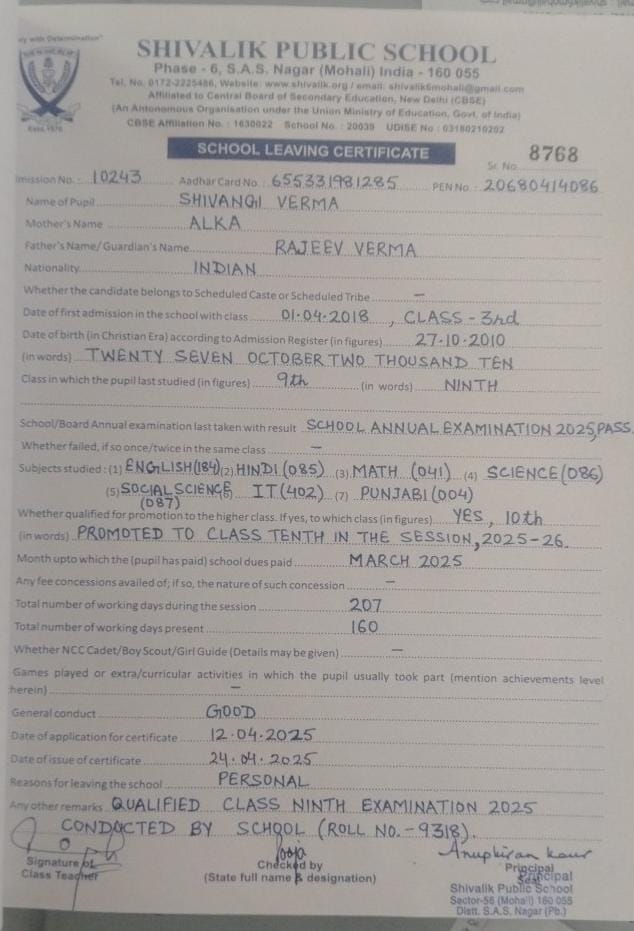 ny with Determination"
SHIVALIK PUBLIC SCHOOL
Phase - 6, S.A.S. Nagar (Mohali) India - 160 055
Tel. No. 0172-2225486, Website: www.shivalik.org / email: shivalik6mohali@gmail.com
Affiliated to Central Board of Secondary Education, New Delhi (CBSE)
(An Antonomous Organisation under the Union Ministry of Education, Govt. of India)
CBSE Affiliation No. : 1630022 School No. : 20039 UDISE No : 03180210202
Estd. 1970
SCHOOL LEAVING CERTIFICATE
Sr. No. 8768
mission No. : 10243 Aadhar Card No. : 655331981285 PEN No : 20680414086
Name of Pupil SHIVANGI VERMA
Mother's Name ALKA
Father's Name/ Guardian's Name RAJEEV VERMA
Nationality INDIAN
Whether the candidate belongs to Scheduled Caste or Scheduled Tribe —
Date of first admission in the school with class 01.04.2018, CLASS - 3rd
Date of birth (in Christian Era) according to Admission Register (in figures) 27.10.2010
(in words) TWENTY SEVEN OCTOBER TWO THOUSAND TEN
Class in which the pupil last studied (in figures) 9th (in words) NINTH
School/Board Annual examination last taken with result SCHOOL ANNUAL EXAMINATION 2025, PASS.
Whether failed, if so once/twice in the same class —
Subjects studied : (1) ENGLISH (184) (2) HINDI (085) (3) MATH (041) (4) SCIENCE (086)
(5) SOCIAL SCIENCE (087) IT (402) (7) PUNJABI (004)
Whether qualified for promotion to the higher class. If yes, to which class (in figures) YES, 10th
(in words) PROMOTED TO CLASS TENTH IN THE SESSION, 2025-26.
Month upto which the (pupil has paid) school dues paid MARCH 2025
Any fee concessions availed of; if so, the nature of such concession —
Total number of working days during the session 207
Total number of working days present 160
Whether NCC Cadet/Boy Scout/Girl Guide (Details may be given) —
Games played or extra/curricular activities in which the pupil usually took part (mention achievements level
herein) —
General conduct GOOD
Date of application for certificate 12.04.2025
Date of issue of certificate 24.04.2025
Reasons for leaving the school PERSONAL
Any other remarks QUALIFIED CLASS NINTH EXAMINATION 2025
CONDUCTED BY SCHOOL (ROLL NO. - 9318).
Signature of
Class Teacher
Pooja
Checked by
(State full name & designation)
Anupkiran Kaur
Principal
Seal
Principal
Shivalik Public School
Sector-56 (Mohali) 160 055
Distt. S.A.S. Nagar (Pb.)